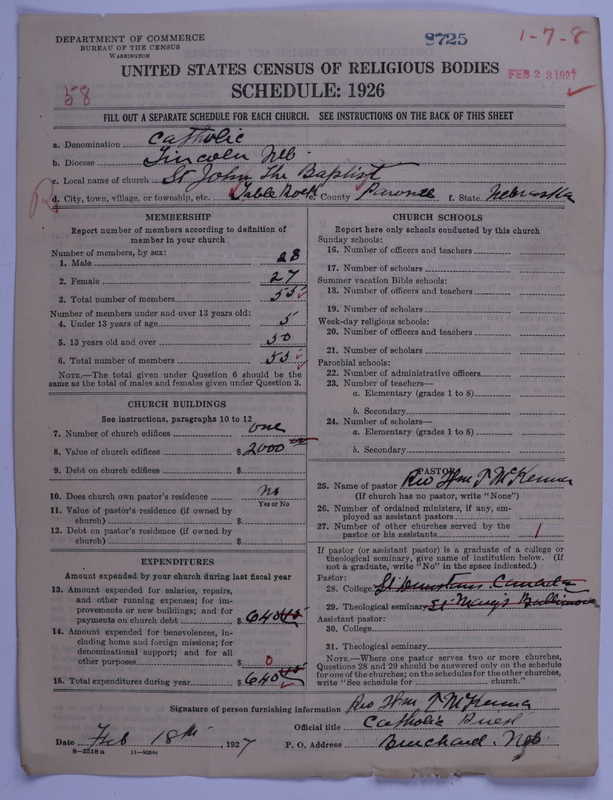 DEPARTMENT OF COMMERCE
BUREAU OF THE CENSUS
WASHINGTON
8725
1-7-8
UNITED STATES CENSUS OF RELIGIOUS BODIES
FEB 23 1927
58
SCHEDULE: 1926
FILL OUT A SEPARATE SCHEDULE FOR EACH CHURCH. SEE INSTRUCTIONS ON THE BACK OF THIS SHEET
a. Denomination Catholic
b. Diocese Lincoln Neb.
c. Local name of church St John The Baptist
d. City, town, village, or township, etc. Table Rock e. County Pawnee f. State Nebraska
MEMBERSHIP
Report number of members according to definition of
member in your church
Number of members, by sex:
1. Male 28
2. Female 27
3. Total number of members 55
Number of members under and over 13 years old:
4. Under 13 years of age 5
5. 13 years old and over 50
6. Total number of members 55
NOTE.—The total given under Question 6 should be the
same as the total of males and females given under Question 3.
CHURCH BUILDINGS
See instructions, paragraphs 10 to 12
7. Number of church edifices one
8. Value of church edifices $ 2000
9. Debt on church edifices $
10. Does church own pastor's residence No
Yes or No
11. Value of pastor's residence (if owned by
church) $
12. Debt on pastor's residence (if owned by
church) $
EXPENDITURES
Amount expended by your church during last fiscal year
13. Amount expended for salaries, repairs,
and other running expenses; for im-
provements or new buildings; and for
payments on church debt $ 640
14. Amount expended for benevolences, in-
cluding home and foreign missions; for
denominational support; and for all
other purposes $ 0
15. Total expenditures during year $ 640
CHURCH SCHOOLS
Report here only schools conducted by this church
Sunday schools:
16. Number of officers and teachers
17. Number of scholars
Summer vacation Bible schools:
18. Number of officers and teachers
19. Number of scholars
Week-day religious schools:
20. Number of officers and teachers
21. Number of scholars
Parochial schools:
22. Number of administrative officers
23. Number of teachers—
a. Elementary (grades 1 to 8)
b. Secondary
24. Number of scholars—
a. Elementary (grades 1 to 8)
b. Secondary
PASTOR
25. Name of pastor Rev Wm T McKenna
(If church has no pastor, write "None")
26. Number of ordained ministers, if any, em-
ployed as assistant pastors
27. Number of other churches served by the
pastor or his assistants 1
If pastor (or assistant pastor) is a graduate of a college or
theological seminary, give name of institution below. (If
not a graduate, write "No" in the space indicated.)
Pastor:
28. College St Dunstans Canada
29. Theological seminary St Mary's Baltimore
Assistant pastor:
30. College
31. Theological seminary
NOTE.—Where one pastor serves two or more churches,
Questions 28 and 29 should be answered only on the schedule
for one of the churches; on the schedules for the other churches,
write "See schedule for church."
Signature of person furnishing information Rev Wm T McKenna
Official title Catholic Priest
Date Feb 18th, 1927 P. O. Address Burchard, Neb.
8-5518a 11-9056a